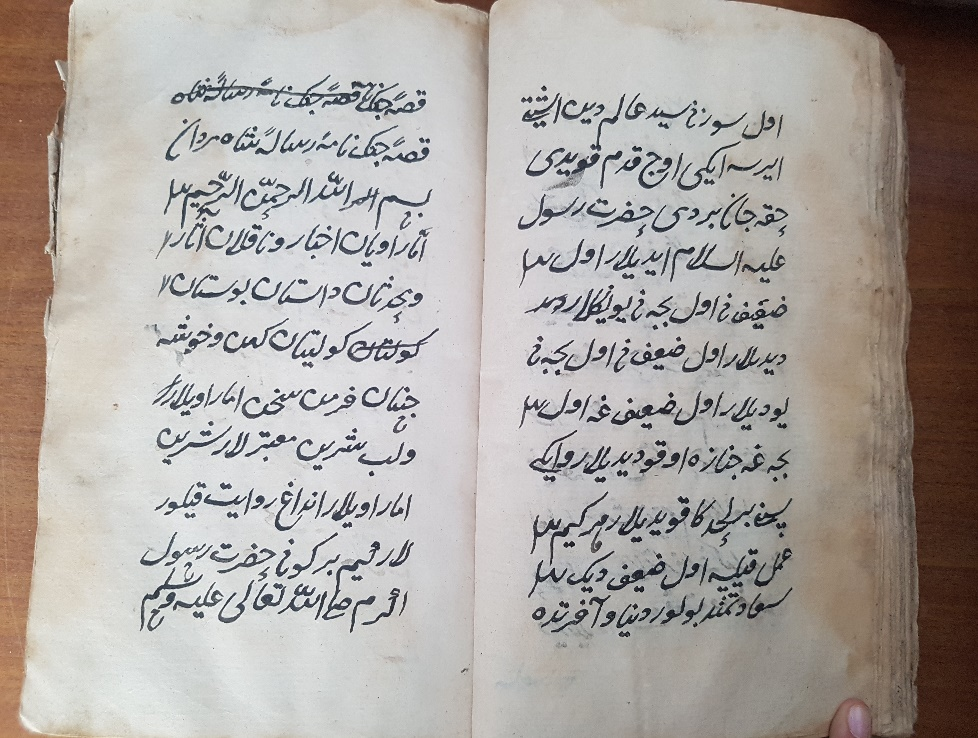 اول سوزنی سید عالم دین ایشیتی
ایرسه ایکی اوچ قدم قویدی
حقه جان بردی حضرت رسول
علیه السلام ایدیلار اول
ضعیف نی اول بچه نی یونکلار
دیدیلار اول ضعیف نی اول بچه نی
یودیلار اول ضعیف غه اول
بچه غه جنازه اوقودیدیلار و ایکی
سن بر لحد کا قویدیلار هر کیم
عمل قیلیپ اول ضعیف دیک
سعادتمند بولور دنیا و آخرتده
قصهٔ جنک نامه رسالهٔ شاه
قصهٔ جنک نامهٔ رسالهٔ شاه مردان
بسم الله الرحمن الرحیم
اما راویان اخبار و ناقلان آثار
و بحرثان داستان بوستان
کولستان کولیتان کهن و خوشه
چنان خرمن سخن اما راویلار
و لب شیرین معتبرلار شیرین
اما راویلار انداغ روایت قیلور
لار کیم بر کونی حضرت رسول
اکرم صلی الله تعالی علیه وسلم